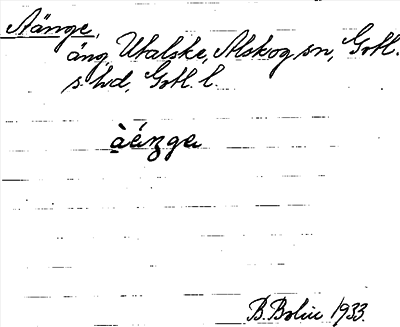 Aänge,
äng, Utalske, Alskog sn, Gotl.
s. hd, Gotl. l.
àénge
B. Bolin 1933.